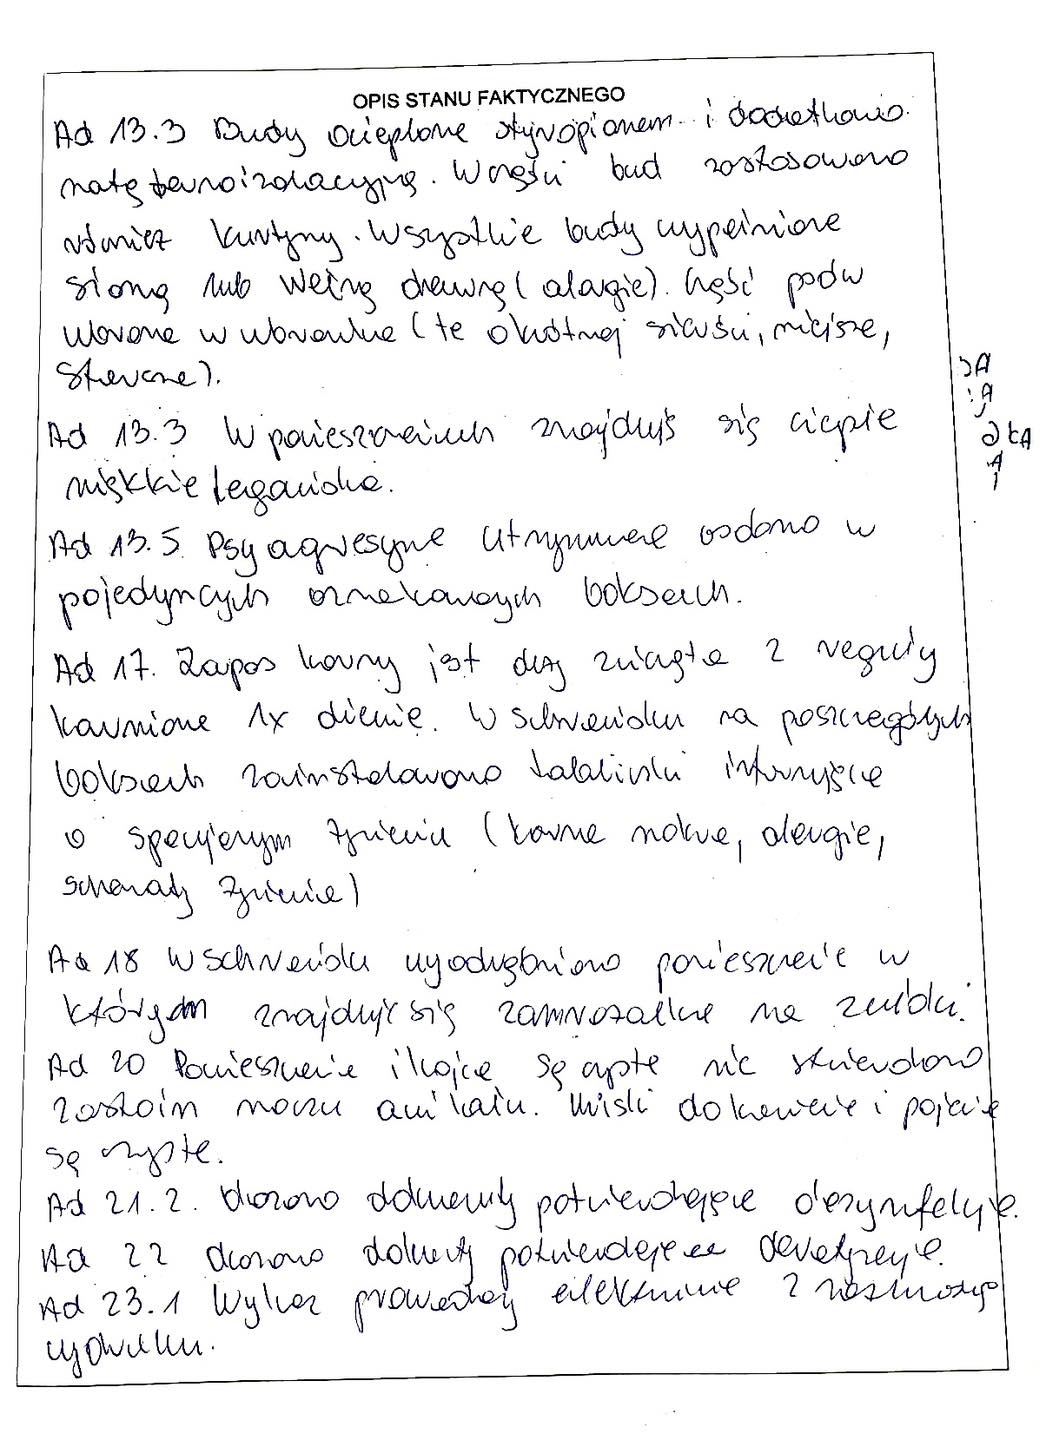 OPIS STANU FAKTYCZNEGO
Ad 13.3 Budy ocieplone styropianem i dodatkowo
matą termoizolacyjną. W części bud zastosowano
również kurtyny. Wszystkie budy wypełnione
słomą lub wełną drzewną (alergie). Część psów
ubrane w ubranka (te o krótkiej sierści, mniejsze,
starsze).
Ad 13.3 W pomieszczeniach znajdują się ciepłe
miękkie legowiska.
Ad 13.5 Psy agresywne utrzymywane osobno w
pojedynczych oznakowanych boksach.
Ad 17. Zapas karmy jest duży zwierzęta z reguły
karmione 1x dziennie. W schronisku na poszczególnych
boksach zainstalowano tabliczki informujące
o specjalnym żywieniu (karma mokra, alergie,
schematy żywienia)
Ad 18 W schronisku wyodrębniono pomieszczenie w
którym znajduje się zamrażarka na zwłoki.
Ad 20 Pomieszczenia i kojce są czyste nie stwierdzono
zastoin moczu ani kału. Miski do karmienia i pojenia
są czyste.
Ad 21.2. okazano dokumenty potwierdzające dezynfekcję.
Ad 22 okazano dokumenty potwierdzające deratyzację.
Ad 23.1 Wykaz prowadzony elektronicznie z możliwością
wydruku.